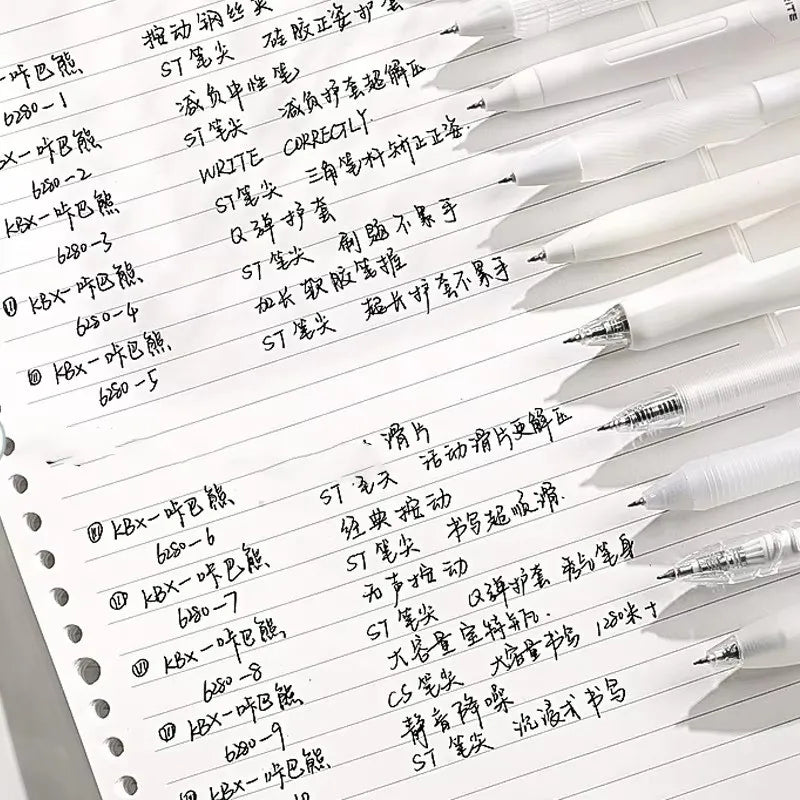 按动钢丝夹
咔巴熊 ST笔尖 硅胶正姿护套
6280-1 减负中性笔
KBX-咔巴熊 ST笔尖 减负护套超解压
6280-2 WRITE CORRECTLY
KBX-咔巴熊 ST笔尖 三角笔杆矫正正姿.
6280-3 Q弹护套
KBX-咔巴熊 ST笔尖 刷题不累手
6280-4 加长软胶笔握
KBX-咔巴熊 ST笔尖 超长护套不累手
6280-5
滑片
KBX-咔巴熊 ST 笔尖 活动滑片更解压
6280-6 经典按动
KBX-咔巴熊 ST笔尖 书写超顺滑.
6280-7 无声按动
KBX-咔巴熊 ST笔尖 Q弹护套 笔身
6280-8 大容量
KBX-咔巴熊 CS笔尖 大容量书写 1280米+
6280-9 静音降噪
KBX-咔巴熊 ST笔尖 沉浸式书写
10